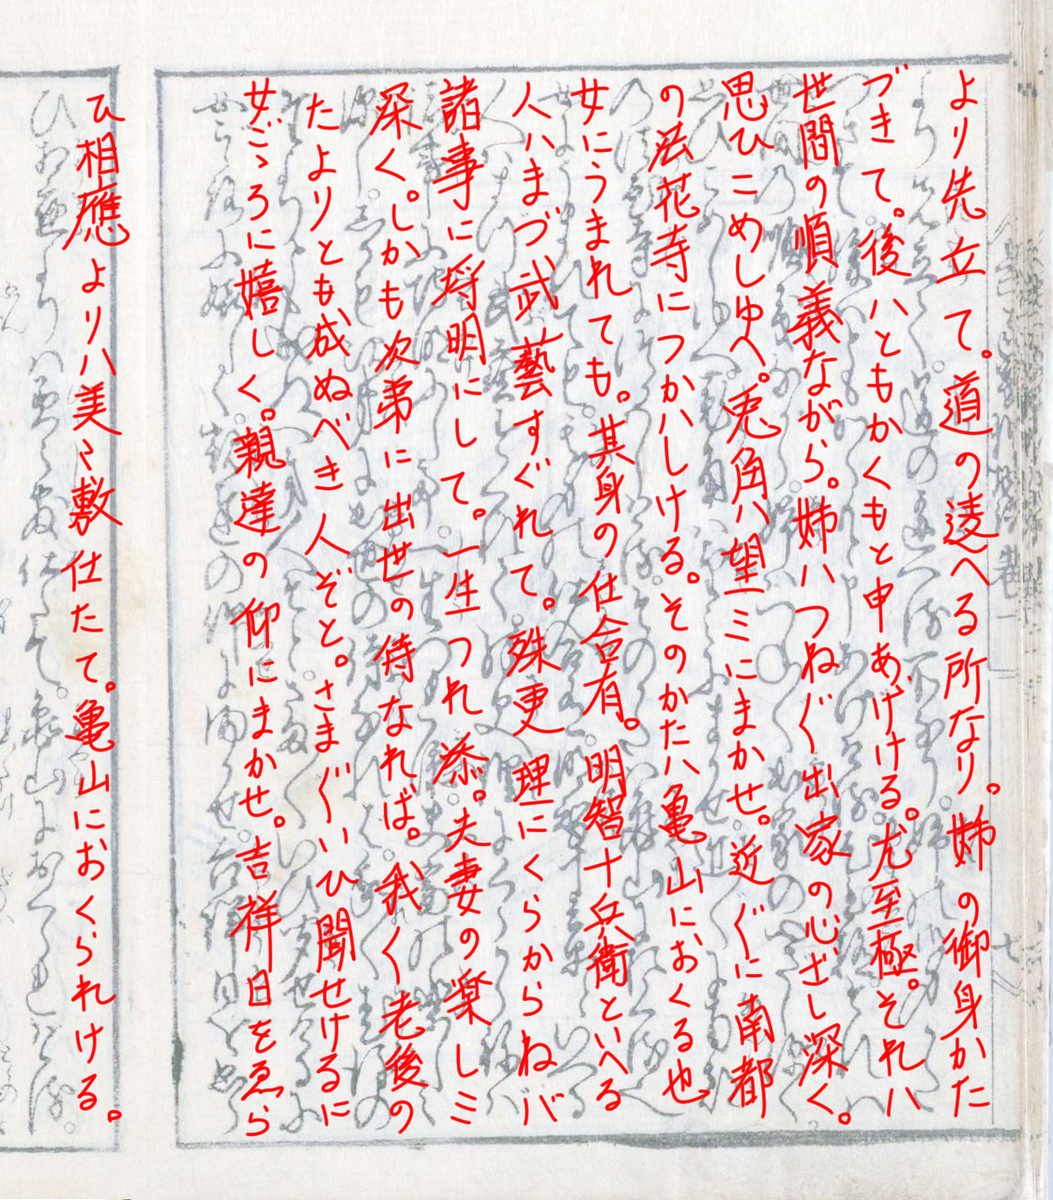 より先立て。道の違へる所なり。姉の御身かた
づきて。後ハともかくもと申あげける。尤至極。それハ
世間の順義ながら。姉ハつね〴〵出家の心ざし深く。
思ひこめしゆへ。兎角ハ望ミにまかせ。近〴〵に南都
の法花寺につかハしける。そのかたハ亀山におくる也
女にうまれても。其身の仕合有。明智十兵衛といへる
人ハまづ武藝すぐれて。殊更理にくらからねバ
諸事に埒明にして。一生つれ添。夫妻の楽しミ
深く。しかも次第に出世の侍なれば。我〳〵老後の
たよりとも成ぬべき人ぞと。さま〴〵いひ聞せけるに
女ごゝろに嬉しく。親達の仰にまかせ。吉祥日をゑら
ひ相應よりハ美〻敷仕たて。亀山におくられける。